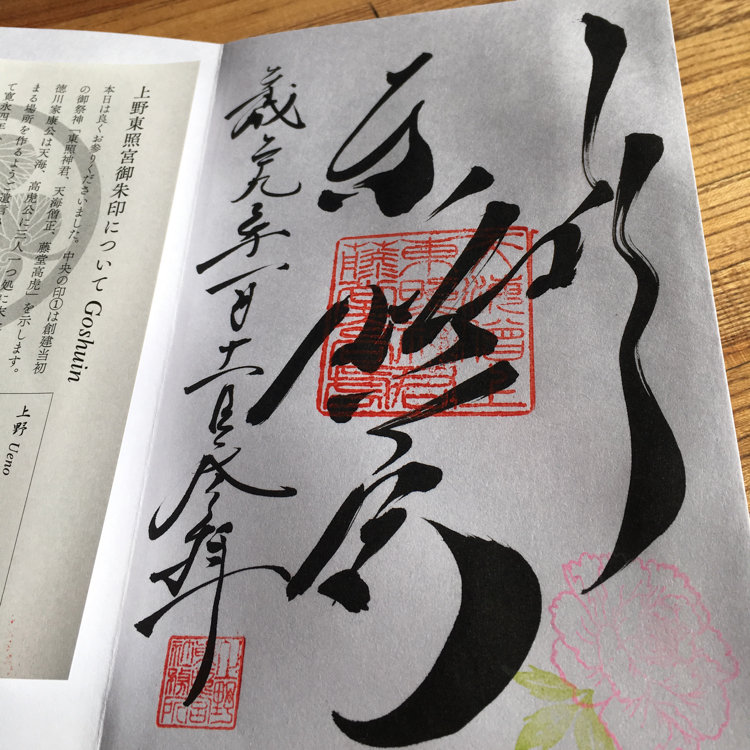 上野
東照宮
二九年一月十一日
天海僧正
東照神君
藤堂高虎
上野
東照宮
社務所
上野東照宮御朱印について Goshuin
本日は良くお参りくださいました。中央の印①は創建当初
の御祭神「東照神君、天海僧正、藤堂高虎」を示します。
徳川家康公は天海、高虎公に「三人一つ処に末
まる場所を作るようご遺言
て寛永四年、
上野 Ueno